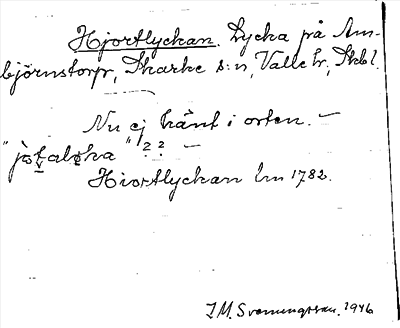 Hjortlyckan. Lycka på Am-
björnstorp, Skarke s:n, Valle hr, Skbl.
Nu ej känt i orten. —
"jo̱ṱaləka" ? ? —
Hiortlyckan Lm 1782.
I.M. Svenningsson. 1946